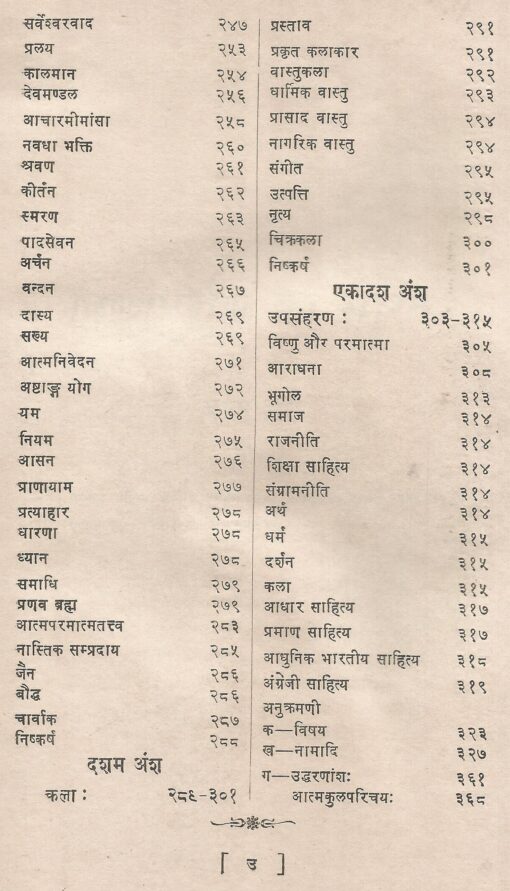 सर्वेश्वरवाद २४७
प्रलय २५३
कालमान २५४
देवमण्डल २५६
आचारमीमांसा २५८
नवधा भक्ति २६०
श्रवण २६१
कीर्तन २६२
स्मरण २६३
पादसेवन २६५
अर्चन २६६
वन्दन २६७
दास्य २६९
सख्य २६९
आत्मनिवेदन २७१
अष्टाङ्ग योग २७२
यम २७४
नियम २७५
आसन २७६
प्राणायाम २७७
प्रत्याहार २७८
धारणा २७८
ध्यान २७८
समाधि २७९
प्रणव ब्रह्म २७९
आत्मपरमात्मतत्त्व २८३
नास्तिक सम्प्रदाय २८५
जैन २८६
बौद्ध २८६
चार्वाक २८७
निष्कर्ष २८८
दशम अंश
कला : २८९-३०१
प्रस्ताव २९१
प्रकृत कलाकार २९१
वास्तुकला २९२
धार्मिक वास्तु २९३
प्रासाद वास्तु २९४
नागरिक वास्तु २९४
संगीत २९५
उत्पत्ति २९५
नृत्य २९८
चित्रकला ३००
निष्कर्ष ३०१
एकादश अंश
उपसंहरण : ३०३-३१५
विष्णु और परमात्मा ३०५
आराधना ३०८
भूगोल ३१३
समाज ३१४
राजनीति ३१४
शिक्षा साहित्य ३१४
संग्रामनीति ३१४
अर्थ ३१४
धर्म ३१५
दर्शन ३१५
कला ३१५
आधार साहित्य ३१७
प्रमाण साहित्य ३१७
आधुनिक भारतीय साहित्य ३१८
अंग्रेजी साहित्य ३१९
अनुक्रमणी
क—विषय ३२३
ख—नामादि ३२७
ग—उद्धरणांशः ३६१
आत्मकुलपरिचयः ३६८
[ उ ]